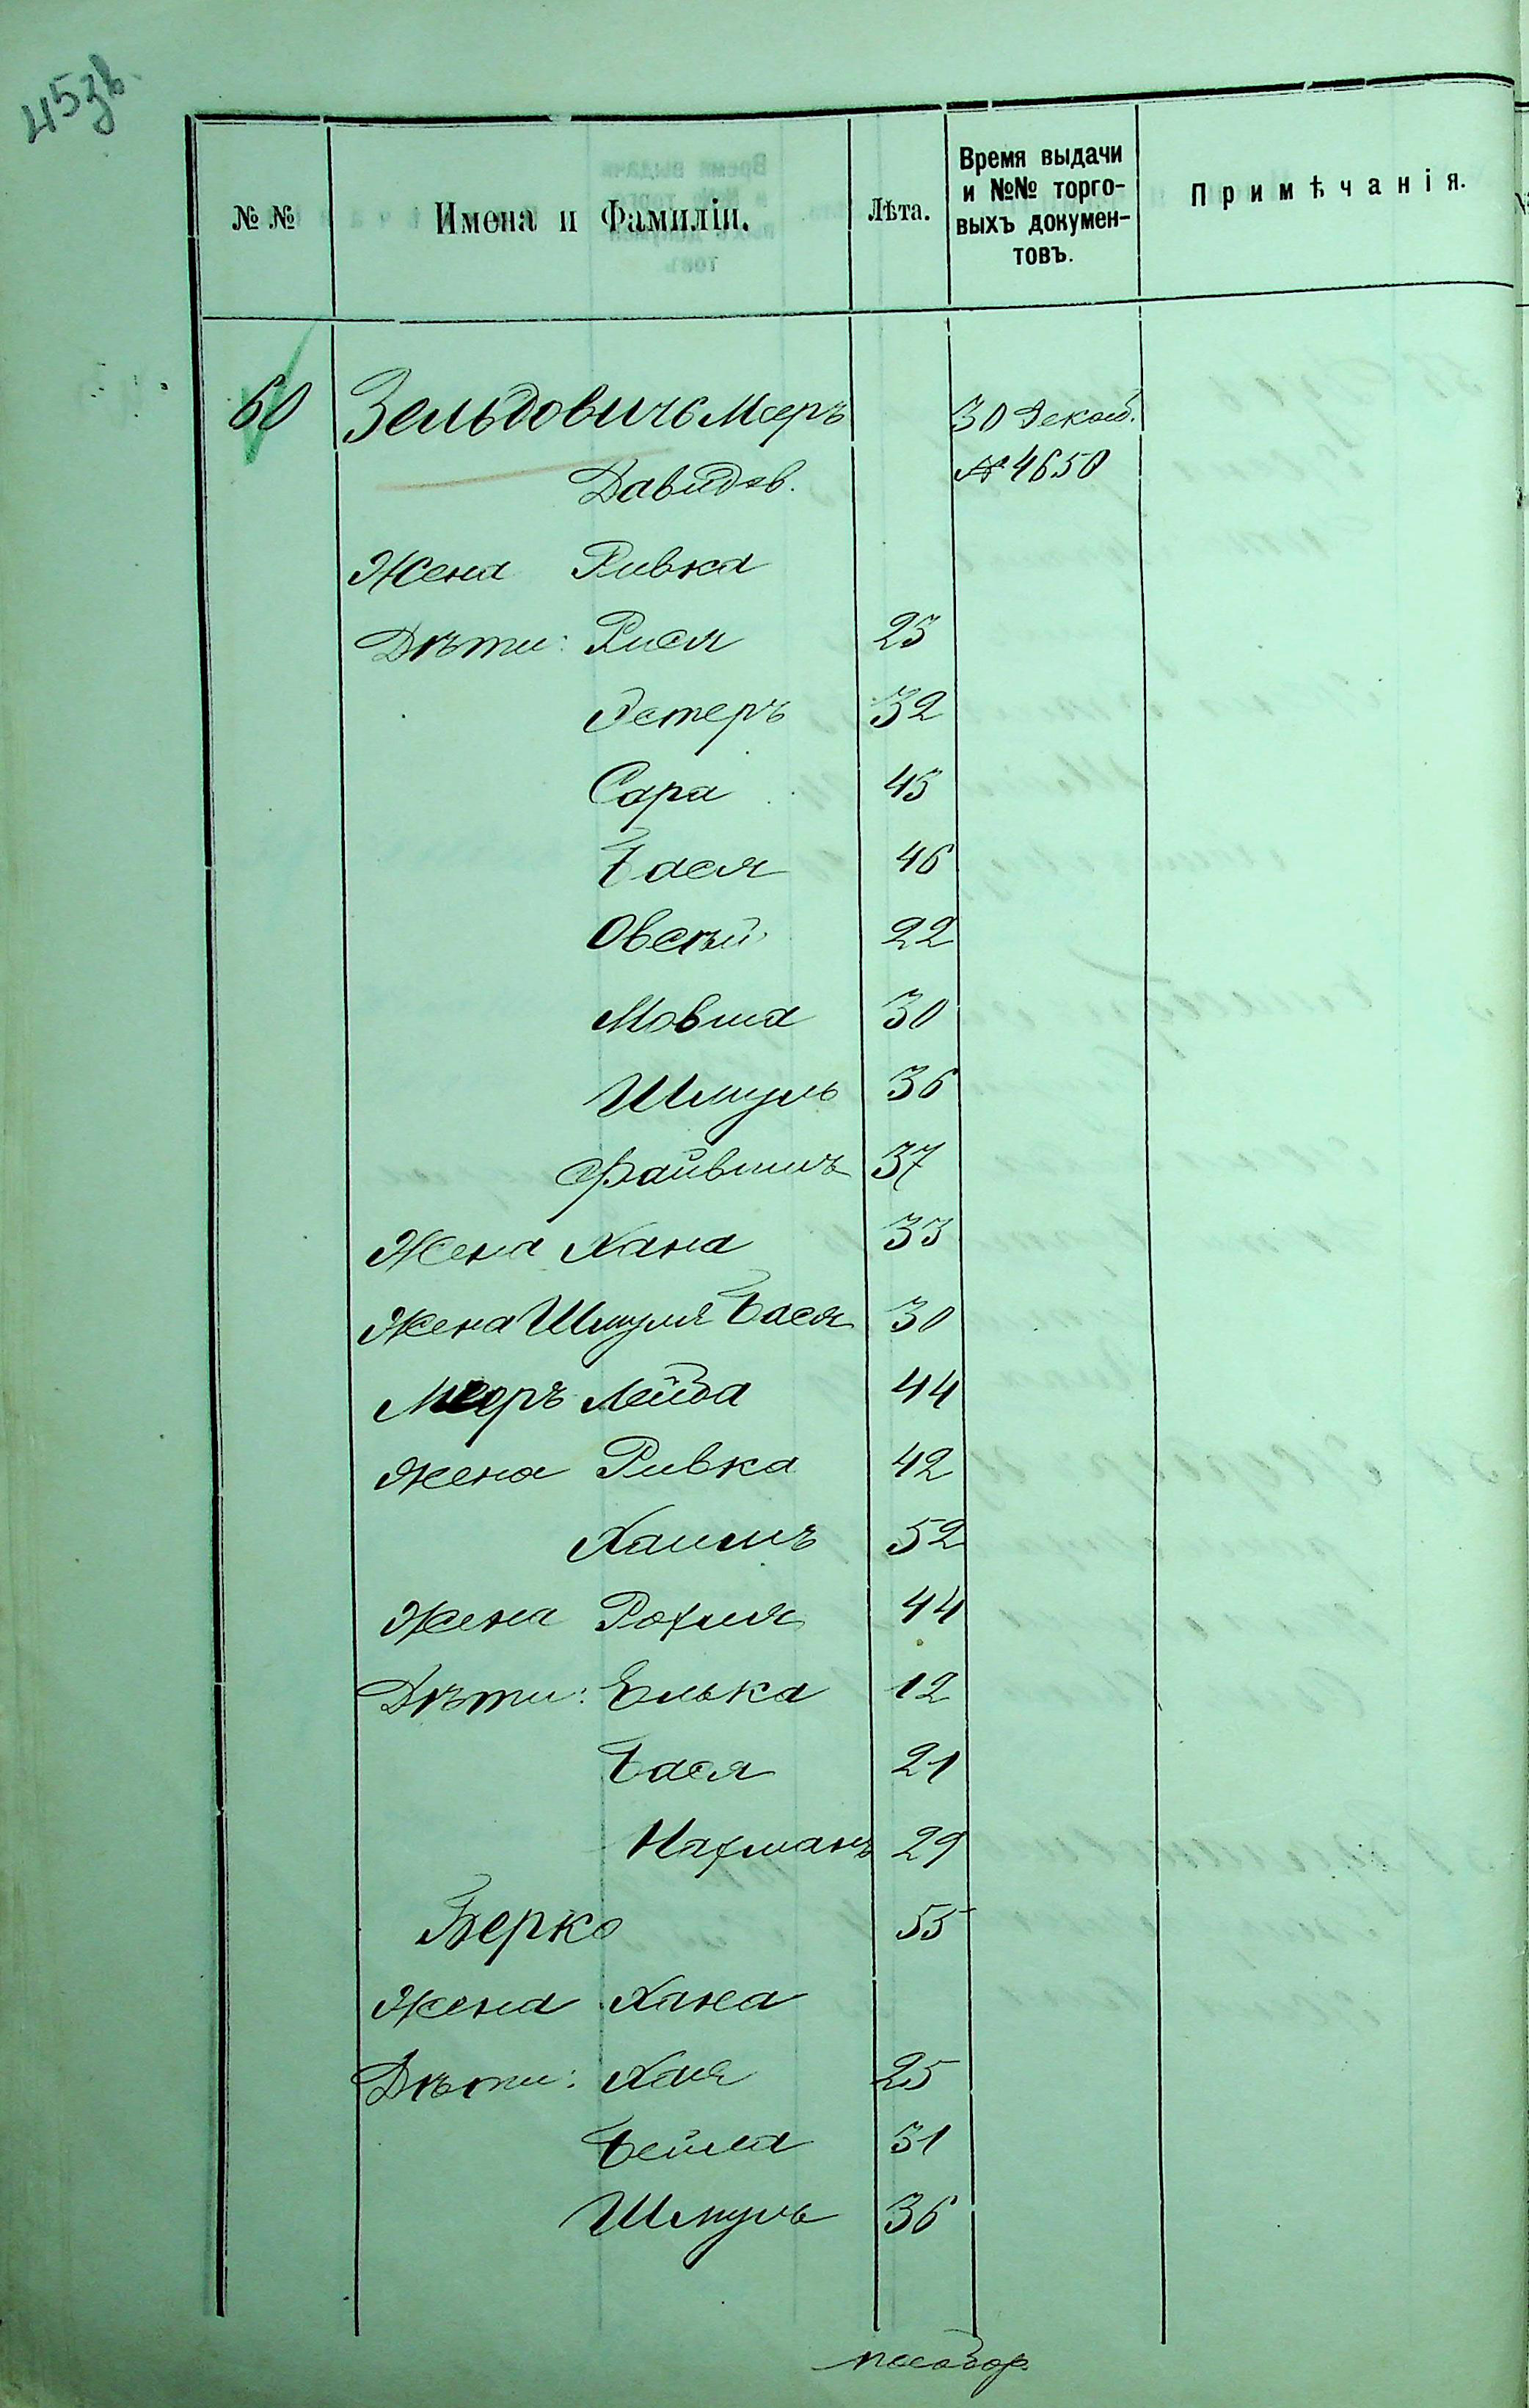 45зв.
№ №
Имена и Фамиліи.
Лѣта.
Время выдачи
и №№ торго-
выхъ докумен-
товъ.
Примѣчанія.
60 Зельдовичъ Мееръ 30 Декаб.
Давидов. № 4650
Жена Ривка
Дѣти: Рися 25
Эстеръ 32
Сара 45
Бася 46
Овсѣй 22
Мовша 30
Шмуль 36
Файвишъ 37
Жена Хана 33
Жена Шмуля Бася 30
Мееръ Лейба 44
Жена Ривка 42
Хаимъ 52
Жена Рохля 44
Дѣти: Элька 12
Бася 21
Нахманъ 29
Берко 55
Жена Хана
Дѣти: Хая 25
Бейла 31
Шмуль 36